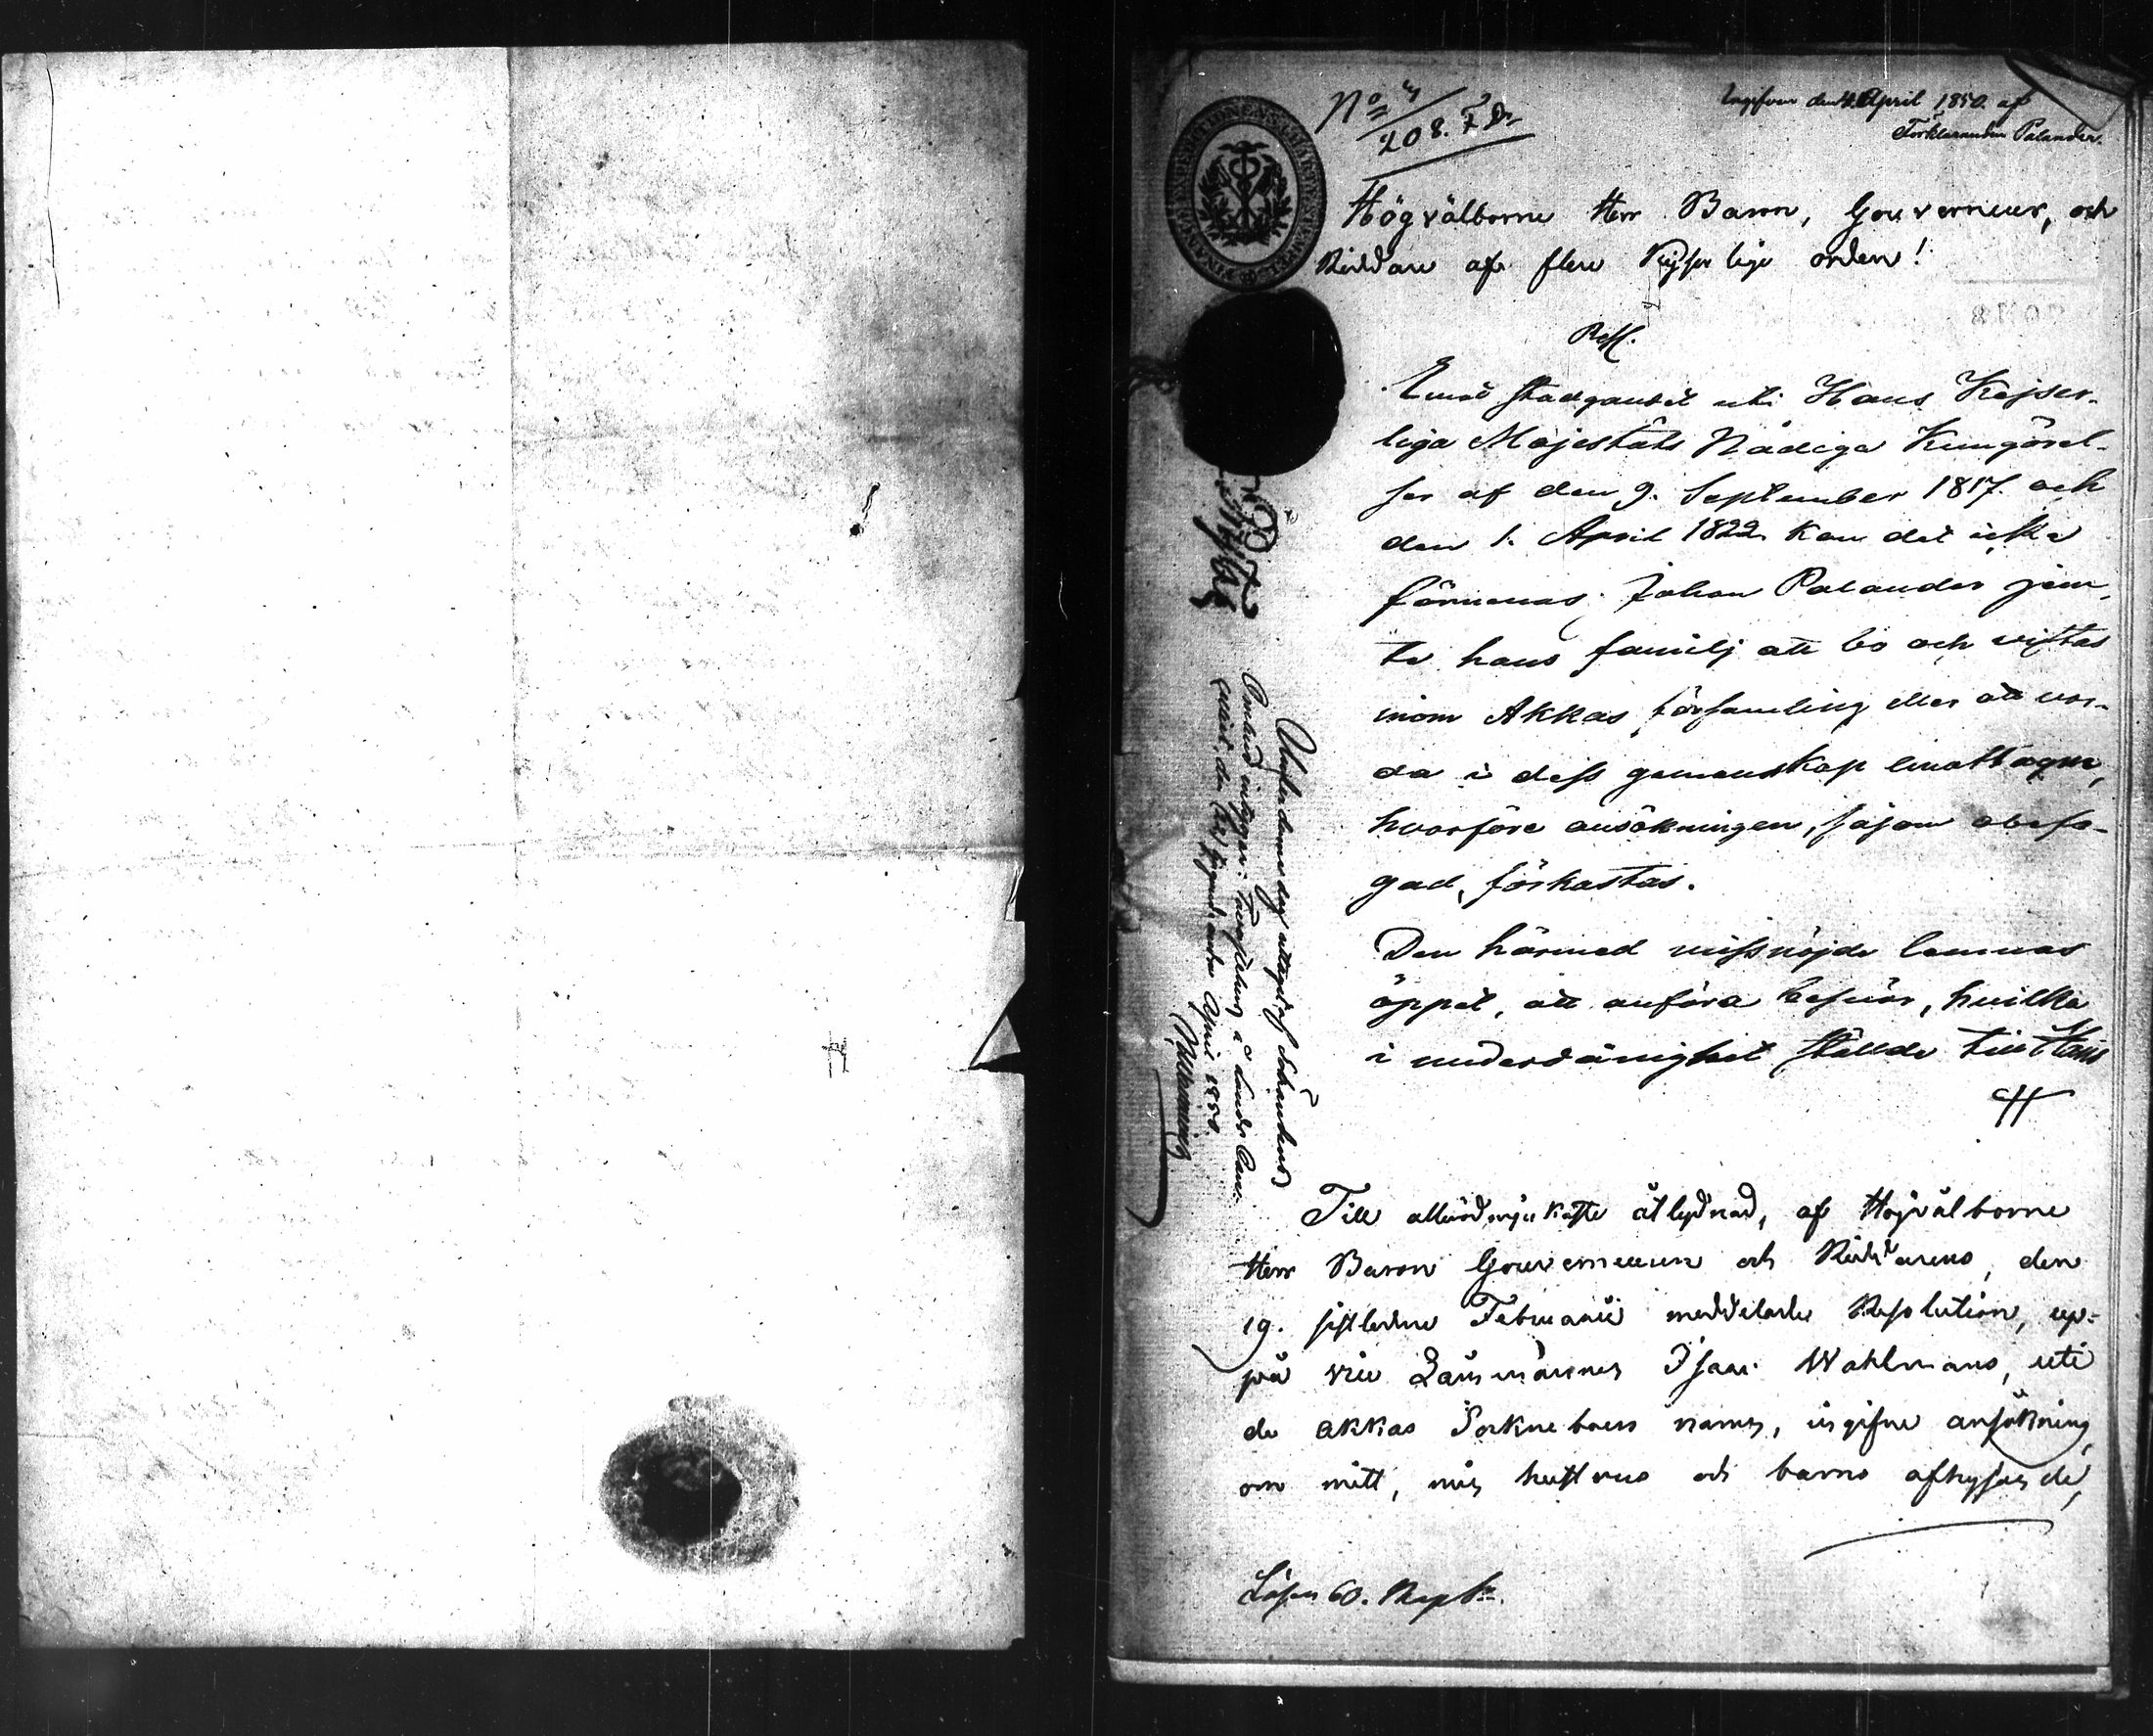 No 4/208. F Dr
Ingifven den 4. April 1850. af
Förklaranden Palander.
Högvälborne Herr Baron, Gouverneur, och
Riddare af flere Kejserlige orden!
Resl.
Emot stadgandet uti Hans Kejser-
liga Majestäts Nådiga Kungörel-
ser af den 9. September 1817. och
den 1. April 1822 kan det icke
förmenas Johan Palander jem-
te hans familj att bo och vistas
inom Akkas församling eller att var-
da i dess gemenskap emottagne,
hvarföre ansökningen, såsom obefo-
gad, förkastas.
Den härmed missnöjde lemnas
öppet, att anföra besvär, hvilka
i underdånighet stälde till Hans
Under denne dag
Bomärke i Lands Can-
celliet, den April 1850.
Till allmödmjukaste åtlydnad, af Högvälborne
Herr Baron Gouverneuren och Riddarens, den
19. sistledne Februarii meddelade Resolution, up-
på vice Länsmannen Isaac Wahlmans, uti
de Akkas Sockneboers namn, ingifne ansökning
om mitt, min hustrus och barns afhysande,
Lösen 60. Kop. Sr.